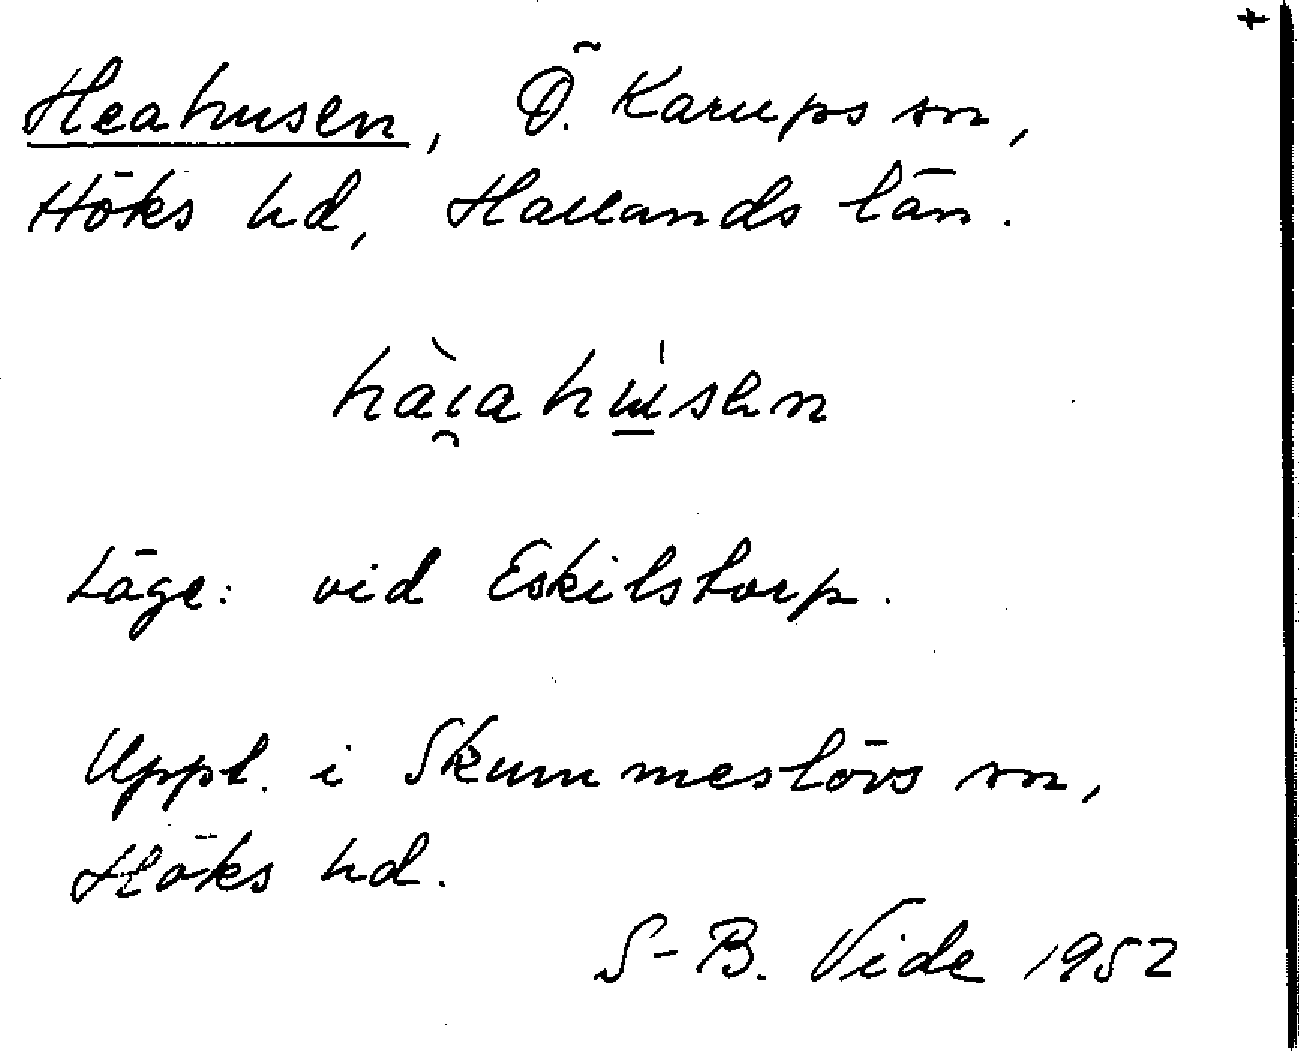 +
Heahusen, Ö. Karups sn,
Höks hd, Hallands län.
Läge: vid Eskilstorp.
Uppt. i Skummeslövs sn,
Höks hd.
S-B. Vide 1952